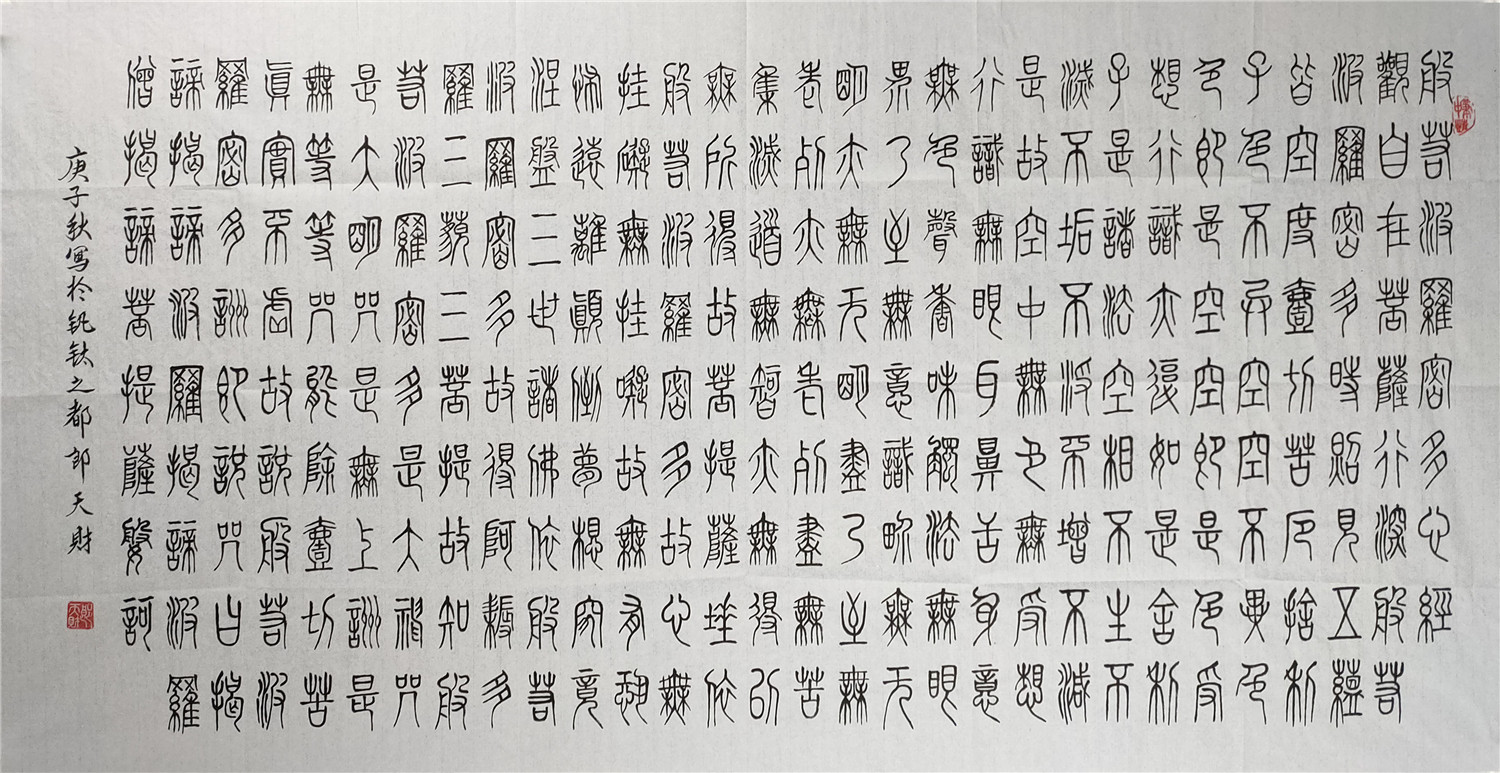 般若波羅密多心經
觀自在菩薩行深般若
波羅密多時照見五蘊
皆空度壹切苦厄捨利
子色不異空空不異色
色即是空空即是色受
想行識亦復如是舍利
子是諸法空相不生不
滅不垢不淨不增不減
是故空中無色無受想
行識無眼耳鼻舌身意
無色聲香味觸法無眼
界乃至無意識界無无
明亦無无明盡乃至無
老死亦無老死盡無苦
集滅道無智亦無得以
無所得故菩提薩埵依
般若波羅密多故心無
挂礙無挂礙故無有恐
怖遠離顛倒夢想究竟
涅盤三世諸佛依般若
波羅密多故得阿耨多
羅三藐三菩提故知般
若波羅密多是大神咒
是大明咒是無上詶是
無等等咒能除壹切苦
真實不虛故說般若波
羅密多詶即說咒曰揭
諦揭諦波羅揭諦波羅
僧揭諦菩提薩婆訶
庚子秋写於钒钛之都郎天財